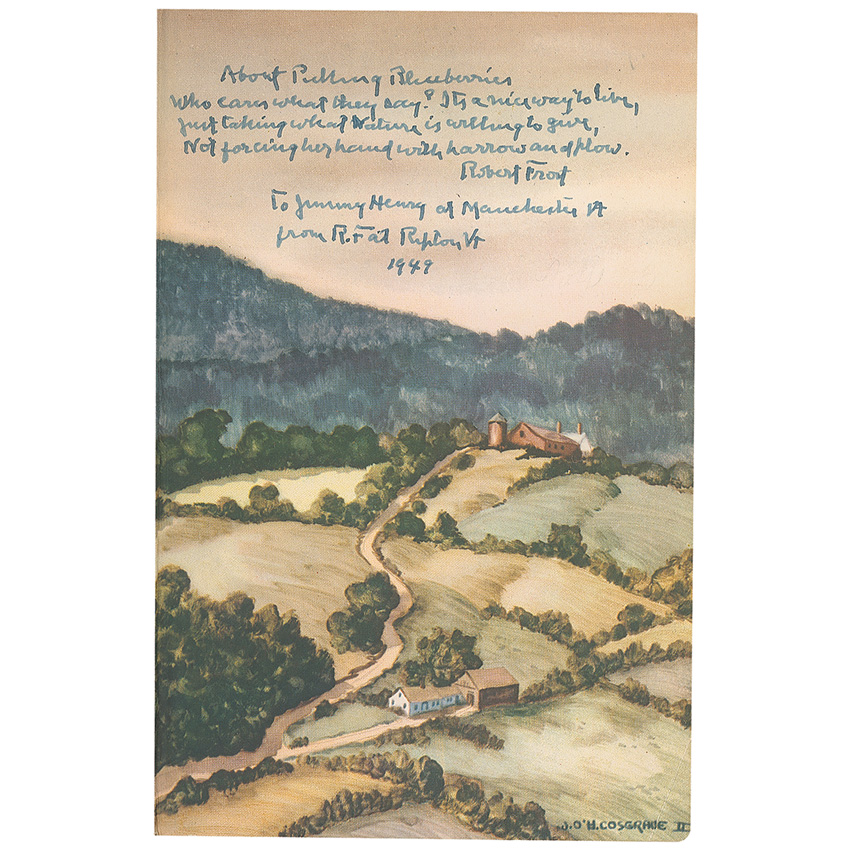 About Picking Blueberries
Who cares what they say? Its a nice way to live,
Just taking what Nature is willing to give,
Not forcing her hand with harrow and plow.
Robert Frost
To Jimmy Henry at Manchester Vt
from R.F. at Ripton Vt
1949
J. O'H. COSGRAVE II